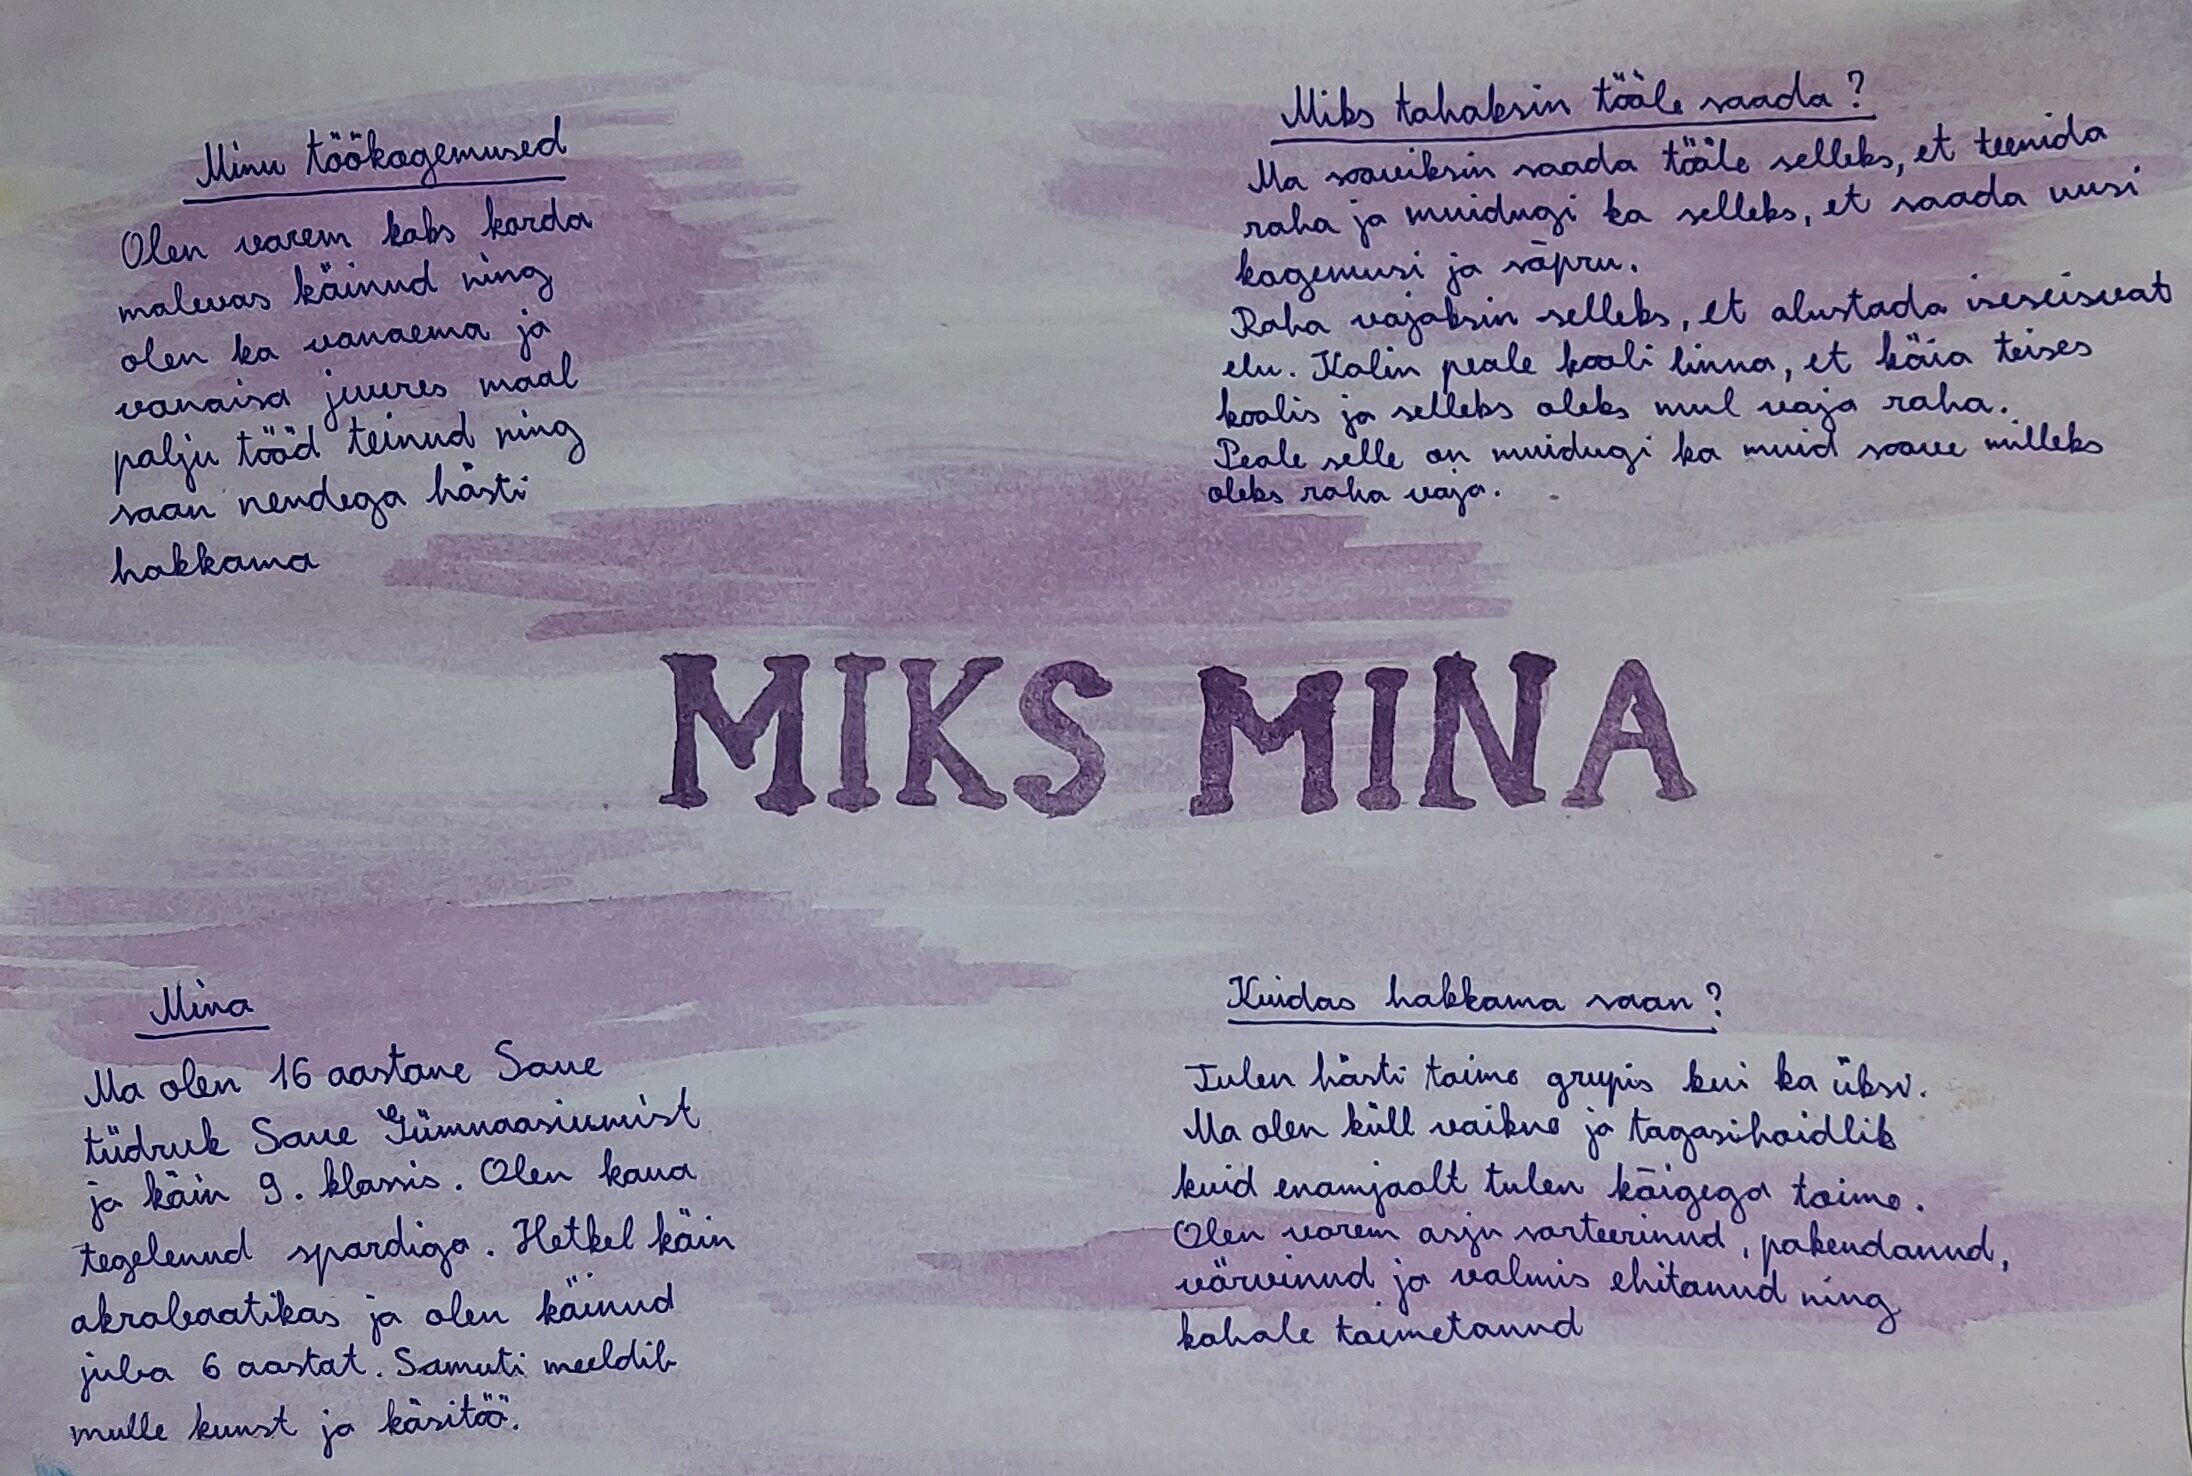 Minu töökogemused
Olen varem kaks korda
malevas käinud ning
olen ka vanaema ja
vanaisa juures maal
palju tööd teinud ning
saan nendega hästi
hakkama
Miks tahaksin tööle saada?
Ma sooviksin saada tööle selleks, et teenida
raha ja muidugi ka selleks, et saada uusi
kogemusi ja sõpru.
Raha vajaksin selleks, et alustada iseseisvat
elu. Kolin peale kooli linna, et käia teises
koolis ja selleks oleks mul vaja raha.
Peale selle on muidugi ka muid soove milleks
oleks raha vaja.
MIKS MINA
Mina
Ma olen 16 aastane Saue
tüdruk Saue Gümnaasiumist
ja käin 9. klassis. Olen kaua
tegelenud spordiga. Hetkel käin
akrobaatikas ja olen käinud
juba 6 aastat. Samuti meeldib
mulle kunst ja käsitöö.
Kuidas hakkama saan?
Tulen hästi toime grupis kui ka üksi.
Ma olen küll vaikne ja tagasihoidlik
kuid enamjaolt tulen kõigega toime.
Olen varem asju sorteerinud, pakendanud,
värvinud ja valmis ehitanud ning
kohale toimetanud